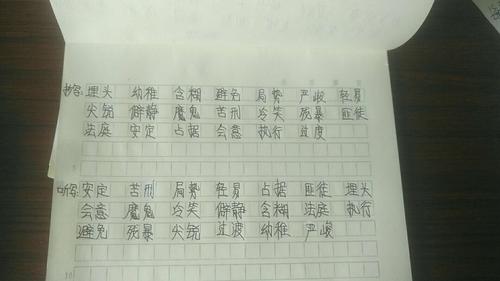 抄写: 埋头 幼稚 含糊 避免 局势 严峻 轻易
尖锐 僻静 魔鬼 苦刑 冷笑 残暴 匪徒
法庭 安定 占据 会意 执行 过度
听写: 安定 苦刑 局势 轻易 占据 匪徒 埋头
会意 魔鬼 冷笑 僻静 含糊 法庭 执行
避免 残暴 尖锐 过渡 幼稚 严峻